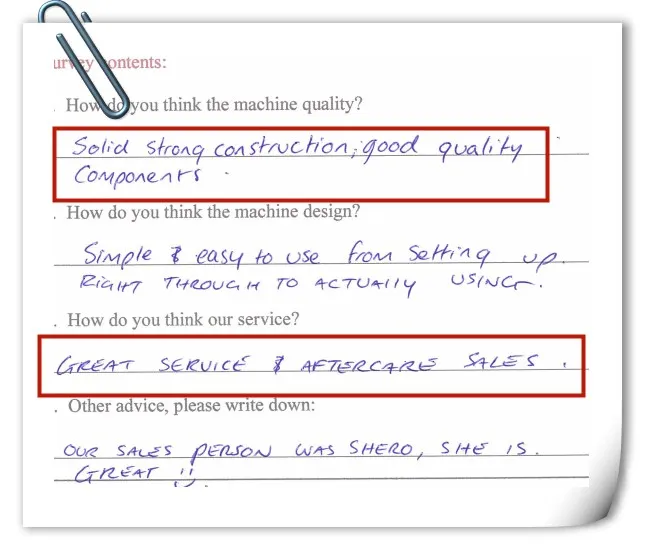 urvey contents:
. How do you think the machine quality?
Solid strong construction, good quality
components.
. How do you think the machine design?
Simple & easy to use from setting up.
RIGHT THROUGH TO ACTUALLY USING.
. How do you think our service?
GREAT SERVICE & AFTERCARE SALES.
. Other advice, please write down:
OUR SALES PERSON WAS SHERO, SHE IS.
GREAT !!